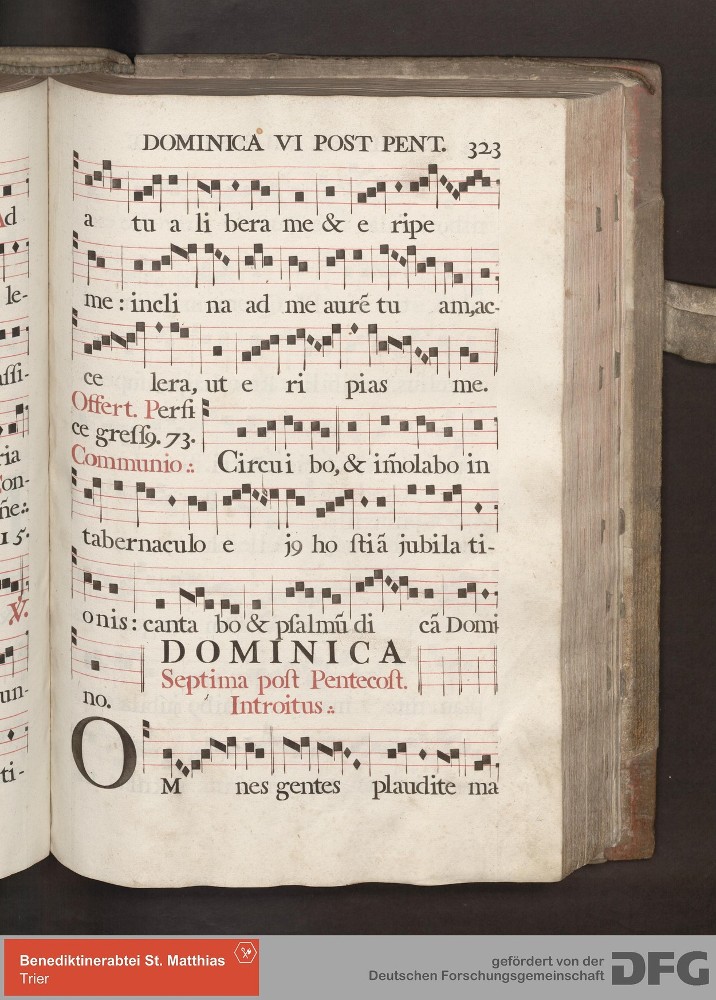 DOMINICA VI POST PENT. 323
a tu a li bera me & e ripe
me: incli na ad me aurẽ tu am, ac-
ce lera, ut e ri pias me.
Offert. Perfi
ce greſſ9. 73.
Communio.: Circu i bo, & im̃olabo in
tabernaculo e j9 ho ſtiã jubila ti-
onis: canta bo & pſalmũ di cã Domi
no.
DOMINICA
Septima poſt Pentecoſt.
Introitus.:
OM nes gentes plaudite ma
Ad
le-
aſſi-
ria
Con-
ñe.:
15.
℣.
un-
ti-
Benediktinerabtei St. Matthias
Trier
gefördert von der
Deutschen Forschungsgemeinschaft
DFG